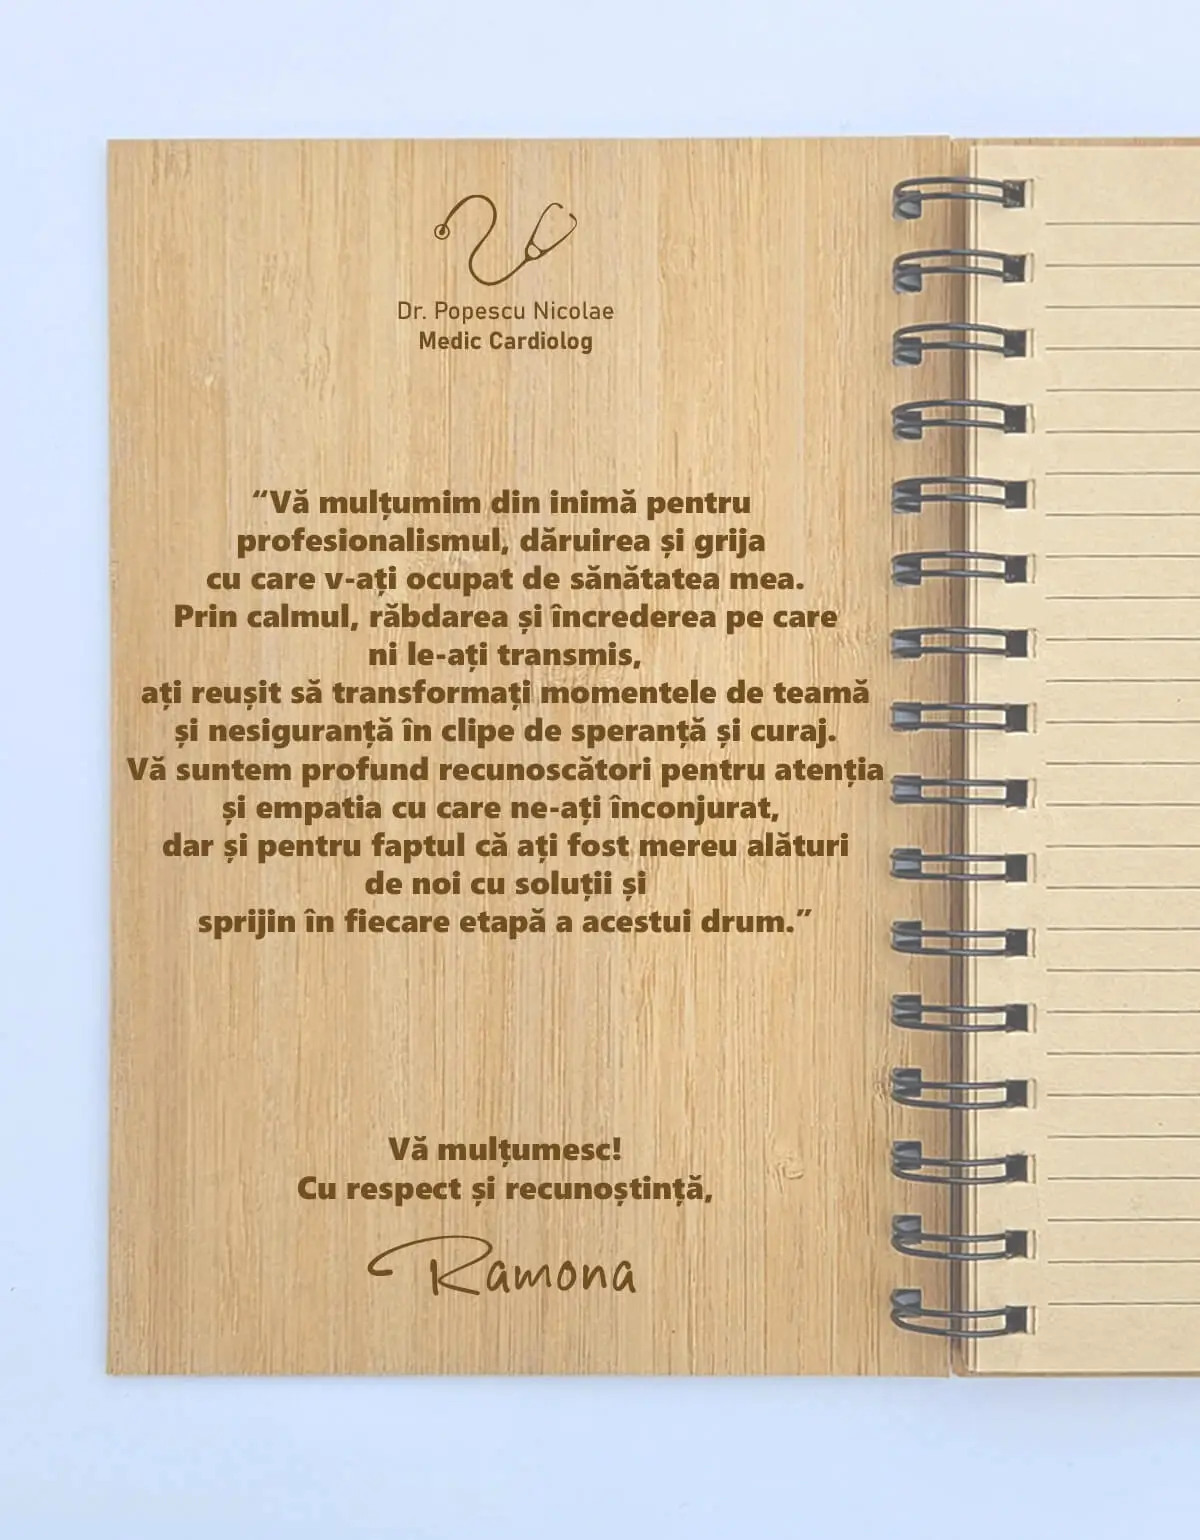 Dr. Popescu Nicolae
Medic Cardiolog
“Vă mulțumim din inimă pentru
profesionalismul, dăruirea și grija
cu care v-ați ocupat de sănătatea mea.
Prin calmul, răbdarea și încrederea pe care
ni le-ați transmis,
ați reușit să transformați momentele de teamă
și nesiguranță în clipe de speranță și curaj.
Vă suntem profund recunoscători pentru atenția
și empatia cu care ne-ați înconjurat,
dar și pentru faptul că ați fost mereu alături
de noi cu soluții și
sprijin în fiecare etapă a acestui drum.”
Vă mulțumesc!
Cu respect și recunoștință,
Ramona